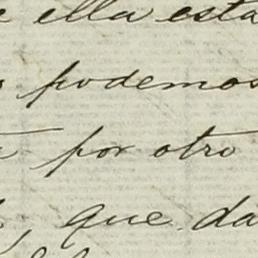 ella esta
podemos
por otro
, que da